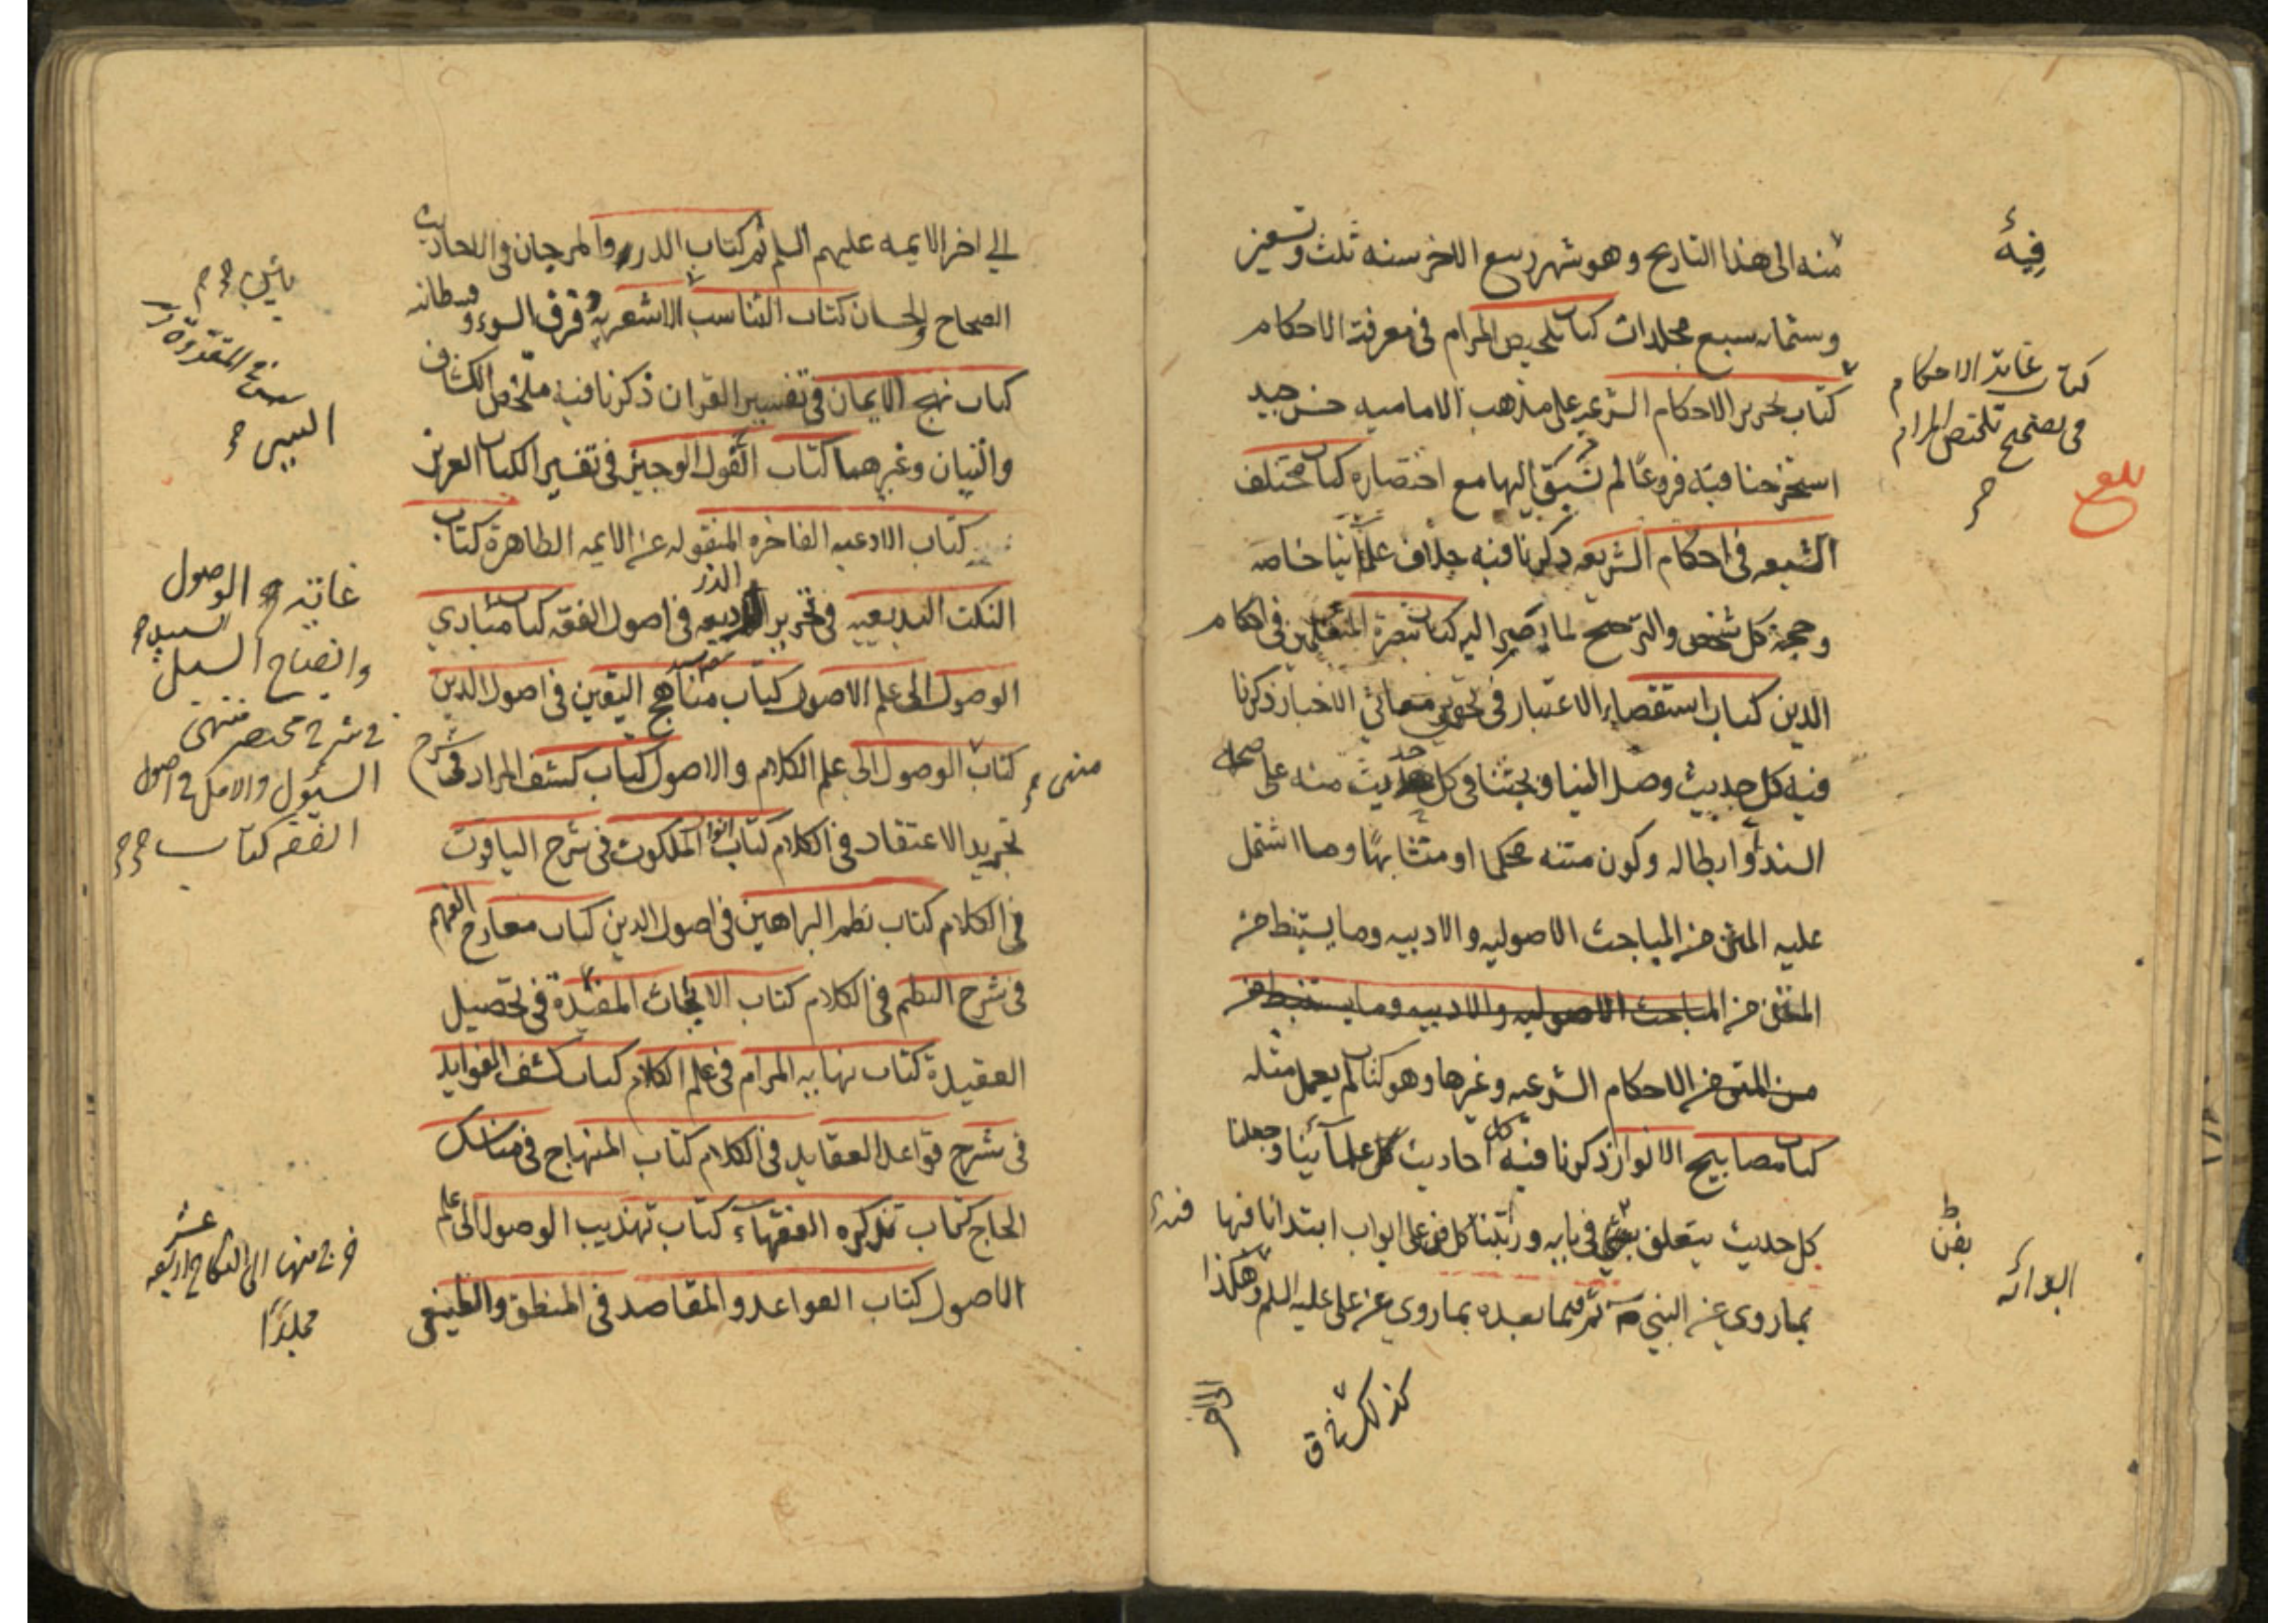 منه الى هذا التاريخ وهو شهر ربيع الاخر سنه ثلث وتسعين
وستمايه سبع مجلدات كتاب تلخيص المرام في معرفة الاحكام
كتاب تحرير الاحكام الشرعيه على مذهب الاماميه حسن جيد
استخرجنا فيه فروعا لم نسبق اليها مع اختصاره كتاب مختلف
الشيعه في احكام الشريعه ذكرنا فيه خلاف علمآئنا خاصه
وحجة كل شخص والترجيح لما يصير اليه كتاب تبصرة المتعلمين في احكام
الدين كتاب استقصاء الاعتبار في تحرير معاني الاخبار ذكرنا
فيه كل حديث وصل الينا وبحثنا في كل حديث منه على صحة
السند او ابطاله وكون متنه محكما او متشابها وما اشتمل
عليه المتن من المباحث الاصوليه والادبيه وما يستنبط من
المتن من المباحث الاصوليه والادبيه وما يستنبط من
من المتن من الاحكام الشرعيه وغيرها وهو كتاب لم يعمل مثله
كتاب مصابيح الانوار ذكرنا فيه كل احاديث علمآئنا وجعلنا
كل حديث يتعلق بفن في بابه ورتبنا كل فن على ابواب ابتدانا فيها
بما روي عن النبي ص ثم فيما بعده بما روي عن علي عليه السلم وهكذا
فيه
كتاب غاية الاحكام
في تصحيح تلخيص المرام
بلغ
بفن
كذلك
الى اخر الايمه عليهم السلم ثم كتاب الدرر والمرجان في الاحاديث
الصحاح والحسان كتاب التناسب الاشعريه وفرق السوء
كتاب نهج الايمان في تفسير القران ذكرنا فيه ملخص الكشاف
والتبيان وغيرهما كتاب القول الوجيز في تفسير الكتاب العزيز
كتاب الادعيه الفاخره المنقوله عن الايمه الطاهرة كتاب
النكت البديعيه في تحرير الذريعه في اصول الفقه كتاب مبادي
الوصول الى علم الاصول كتاب مناهج اليقين في اصول الدين
كتاب الوصول الى علم الكلام والاصول كتاب كشف المراد في شرح
تجريد الاعتقاد في الكلام كتاب انوار الملكوت في شرح الياقوت
في الكلام كتاب نظم البراهين في اصول الدين كتاب معارج الفهم
في شرح النظم في الكلام كتاب الابحاث المفيدة في تحصيل
العقيدة كتاب نهايه المرام في علم الكلام كتاب كشف الفوايد
في شرح قواعد العقايد في الكلام كتاب المنهاج في مناسك
الحاج كتاب تذكره الفقهآء كتاب تهذيب الوصول الى علم
الاصول كتاب القواعد والمقاصد في المنطق والطبيعي
منتهى
غاية الوصول
وايضاح السبل
في شرح مختصر منتهى
السؤل والامل في اصول
الفقه كتاب
خرج منه الى النكاح اربعه عشر
مجلدا